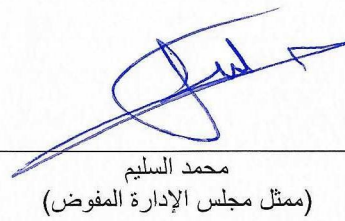 محمد السليم
(ممثل مجلس الإدارة المفوض)